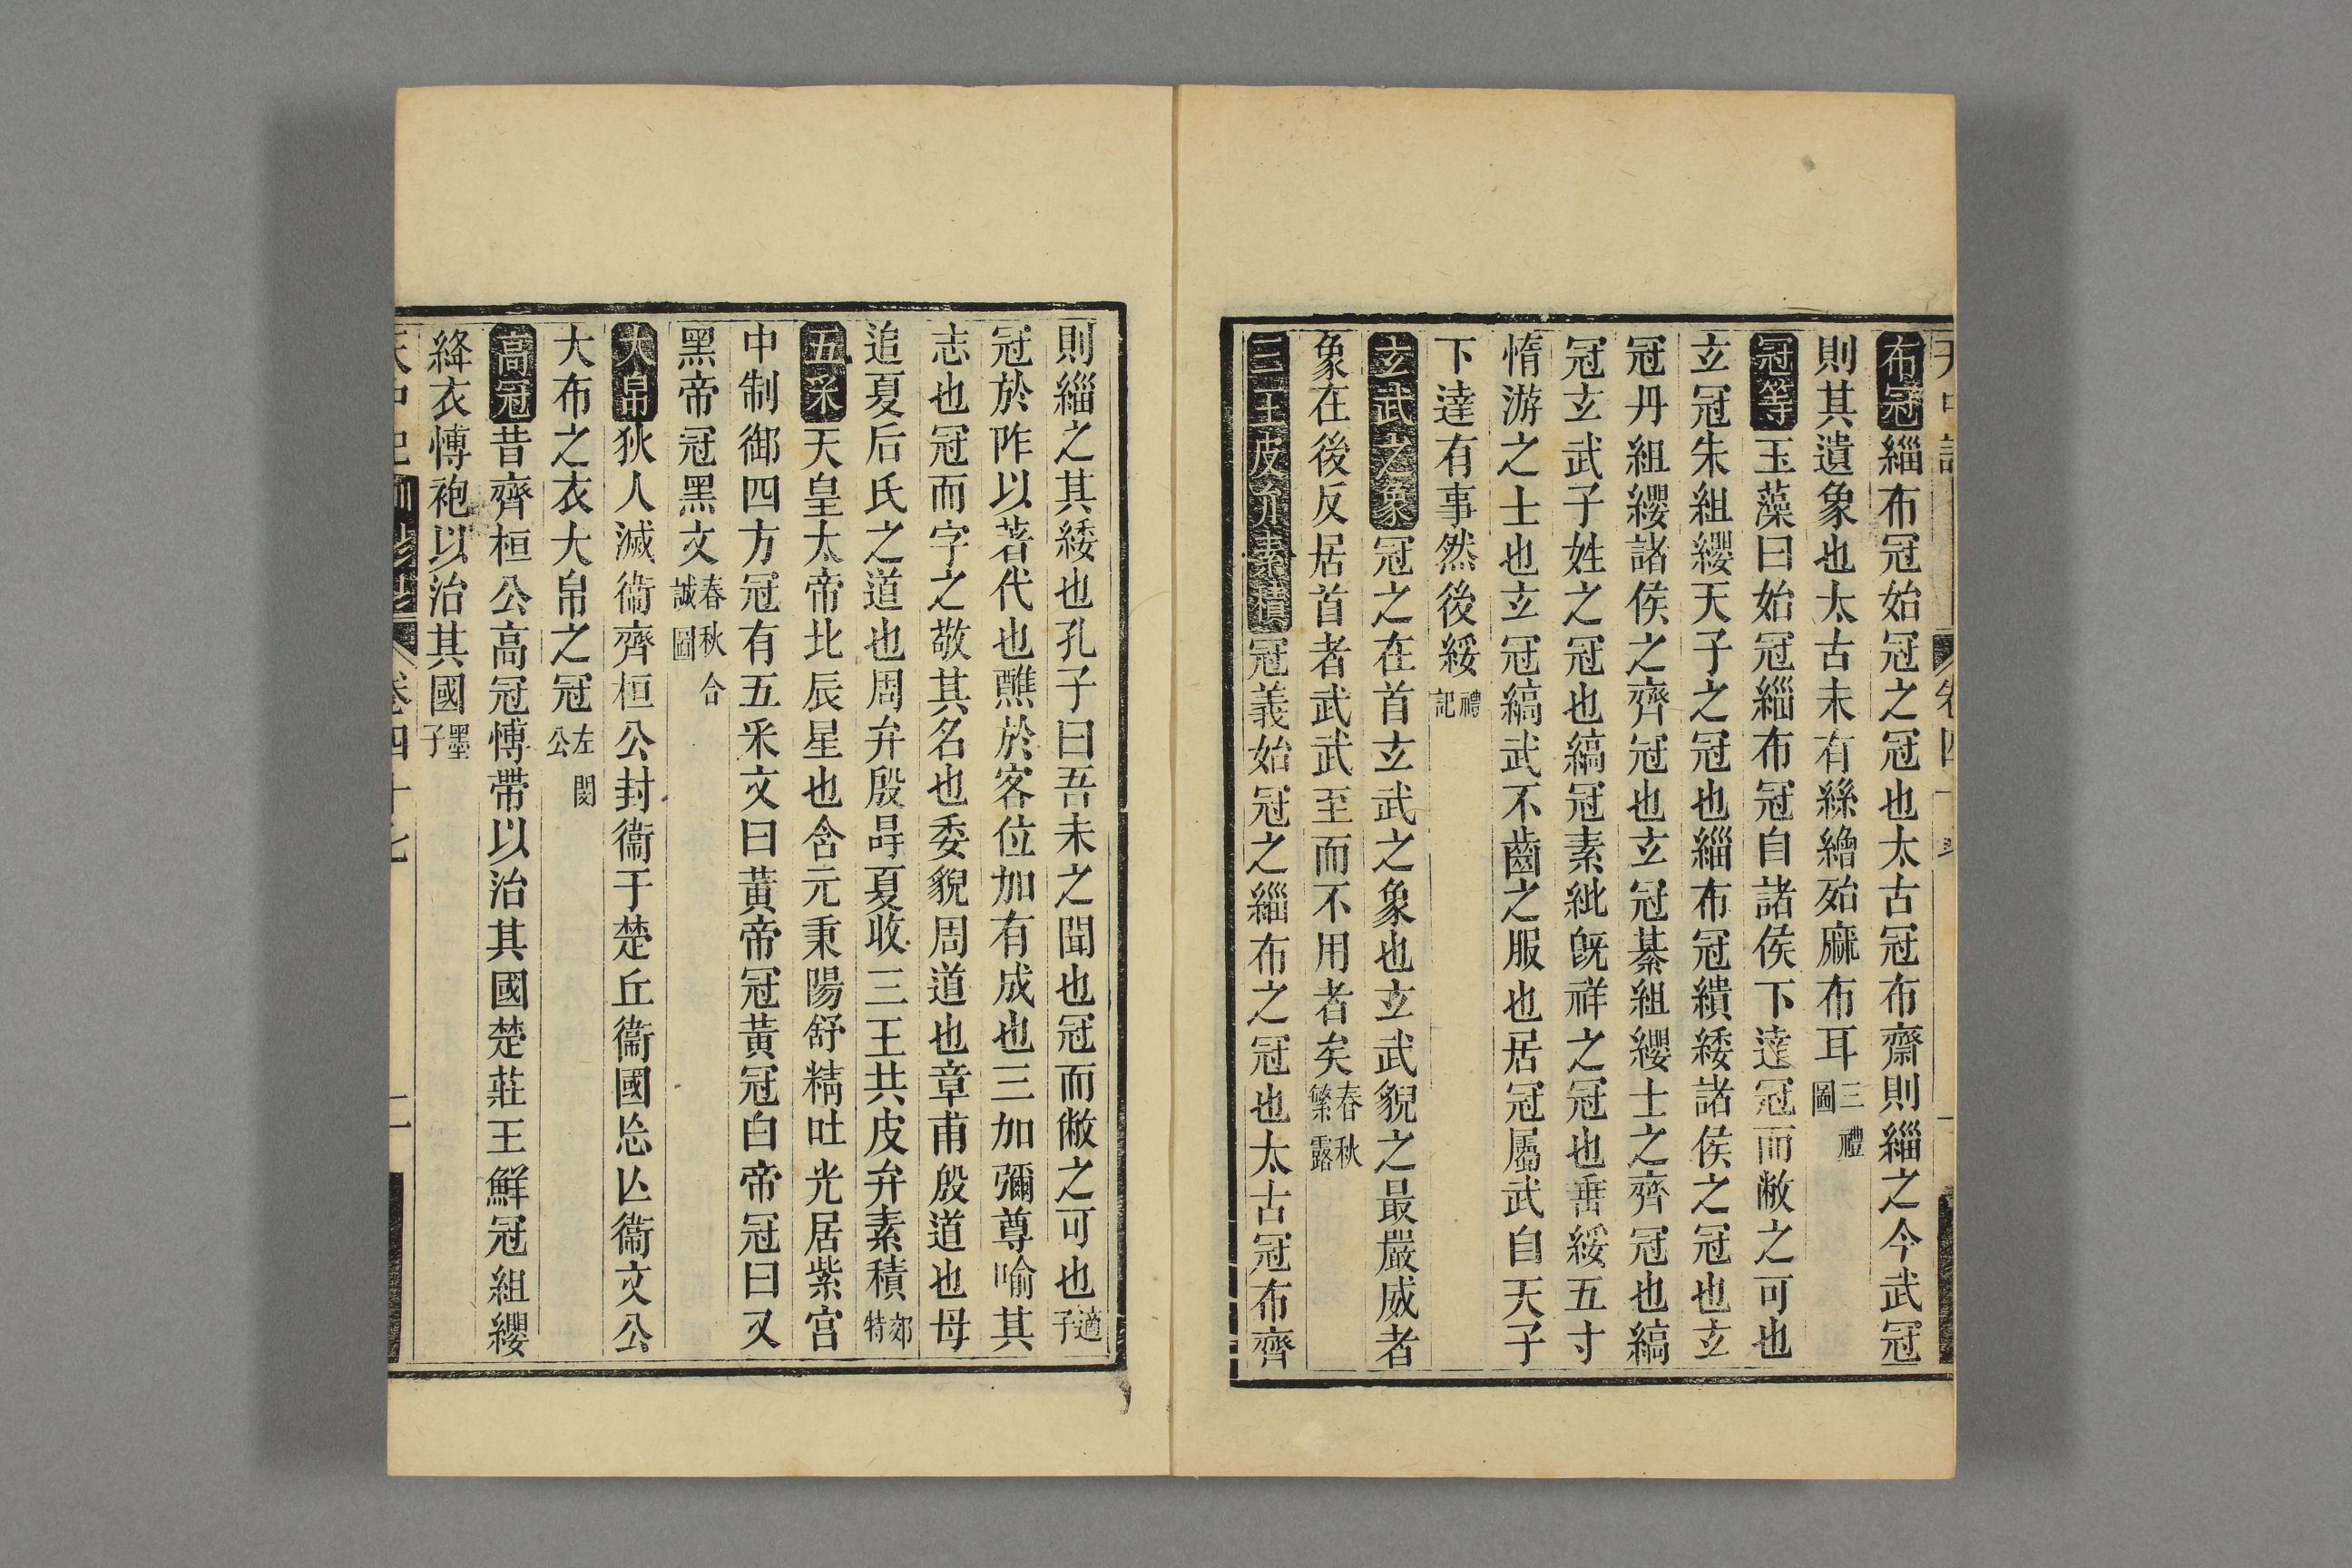 布冠緇布冠始冠之冠也太古冠布齋則緇之今武冠
則其遺象也太古未有絲繒始麻布耳三禮圖
冠等玉藻曰始冠緇布冠自諸侯下達冠而敝之可也
玄冠朱組纓天子之冠也緇布冠繢緌諸侯之冠也玄
冠丹組纓諸侯之齊冠也玄冠綦組纓士之齊冠也縞
冠玄武子姓之冠也縞冠素紕旣祥之冠也垂綏五寸
惰游之士也玄冠縞武不齒之服也居冠屬武自天子
下達有事然後綏禮記
玄武之象冠之在首玄武之象也玄武貌之最嚴威者
象在後反居首者武武至而不用者矣春秋繁露
三王皮弁素積冠義始冠之緇布之冠也太古冠布齊
則緇之其緌也孔子曰吾未之聞也冠而敝之可也適子
冠於阼以著代也醮於客位加有成也三加彌尊喻其
志也冠而字之敬其名也委貌周道也章甫殷道也母
追夏后氏之道也周弁殷冔夏收三王共皮弁素積郊特
五采天皇太帝北辰星也含元秉陽舒精吐光居紫宫
中制御四方冠有五采文曰黃帝冠黃冠白帝冠曰文
黑帝冠黑文春秋合誠圖
大帛狄人滅衞齊桓公封衞于楚丘衞國忘亾衞文公
大布之衣大帛之冠左閔公
高冠昔齊桓公高冠慱帶以治其國楚莊王鮮冠組纓
絳衣慱袍以治其國墨子
卷四十七